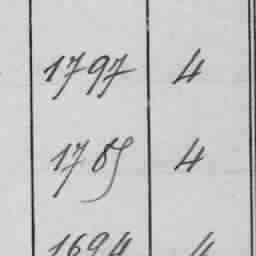 1797 4
1785 4
1694 4